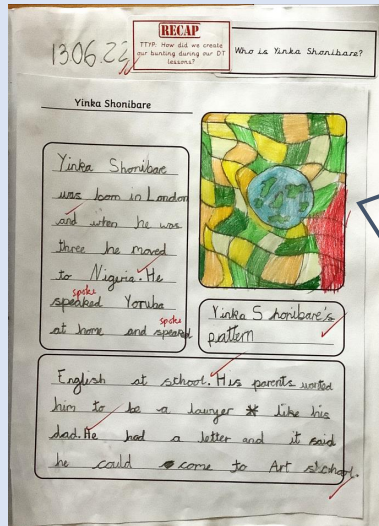 13.06.22
RECAP
TTYP: How did we create
our bunting during our DT
lessons?
Who is Yinka Shonibare?
Yinka Shonibare
Yinka Shonibare
was born in London
and when he was
three he moved
to Nigeria. He
spoke
speaked Yoruba
spoke
at home and speaked
Yinka Shonibare's
pattern
English at school. His parents wanted
him to be a lawyer like his
dad. He had a letter and it said
he could come to Art school.